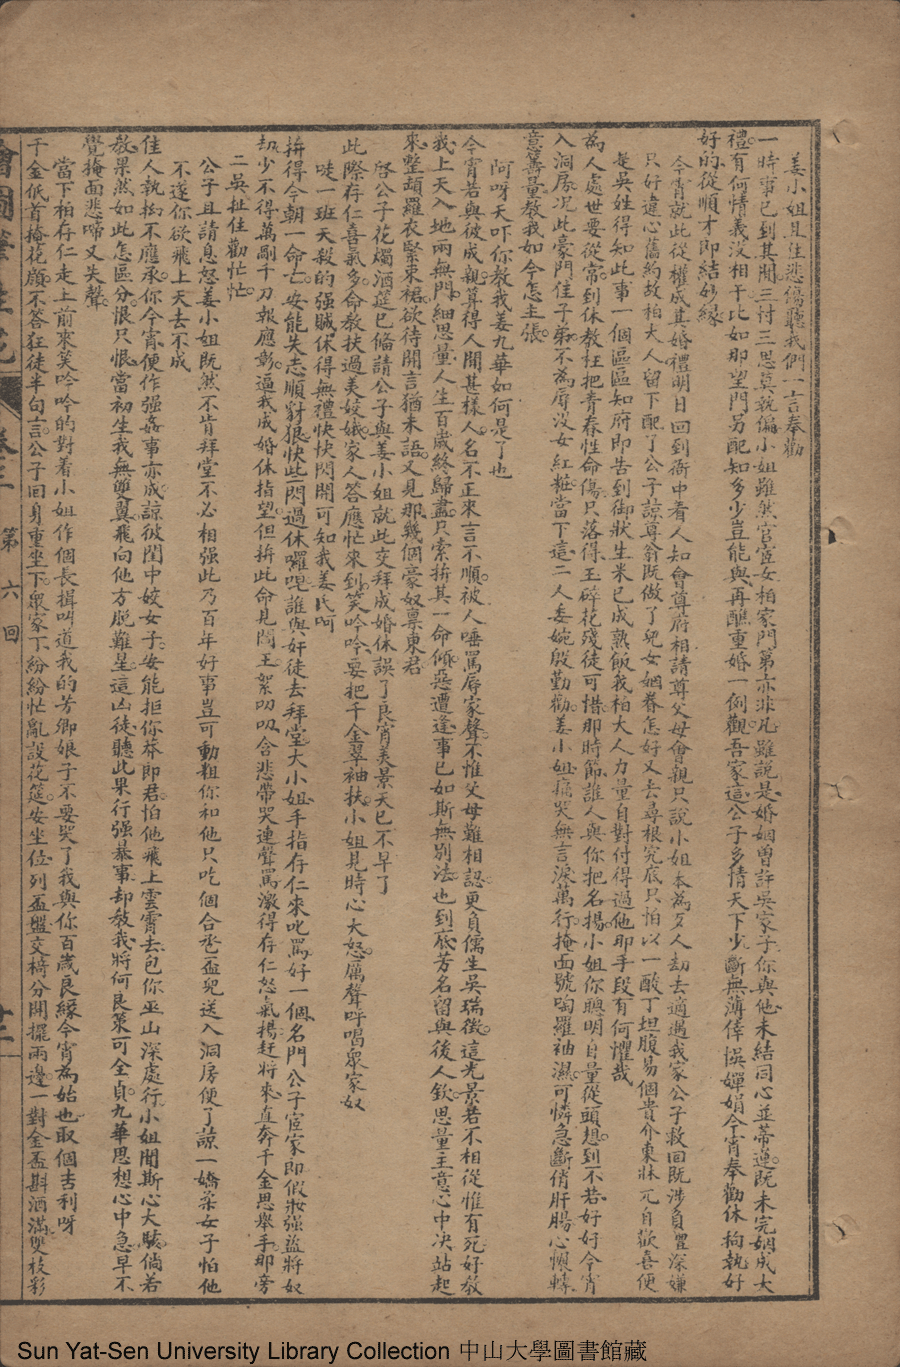 姜小姐且住悲傷聽我們一言奉勸
一時事已到其間三忖三思莫執偏小姐雖然官宦女柏家門第亦非凡雖說是婚姻曾許吳家子你與他未結同心並蒂蓮既未完姻成大
禮有何情義沒相干比如那望門另配知多少豈能與再醮重婚一例觀吾家這公子多情天下少斷無薄倖悞嬋娟今宵奉勸休拘執好
好的從順才即結妙緣
今宵就此從權成其婚禮明日回到衙中着人知會尊府相請尊父母會親只說小姐本為歹人劫去適遇我家公子救回既涉負嫌
只好違心舊約故柏大人留下配了公子諒尊翁既做了兒女姻眷怎好又去尋根究底只怕以一酸丁坦腹易個貴介東牀元自歡喜便
是吳姓得知此事一個區區知府即告到御狀生米已成熟飯我柏大人力量自對付得過他那手段有何懼哉
為人處世要從常到休教枉把青春性命傷只落得玉碎花殘徒可惜那時節誰人與你把名揚小姐你聰明自量從頭想到不若好好今宵
入洞房况此豪門佳子弟不為辱沒女紅粧當下這二人委婉殷勤勸姜小姐痛哭無言淚萬行掩面號啕羅袖濕可憐急斷俏肝腸心懊轉
意籌量教我如今怎主張
阿呀天吓你教我姜九華如何是了也
今宵若與彼成親算得人間甚樣人名不正來言不順被人唾罵辱家聲不惟父母難相認更負儒生吳瑞徵這光景若不相從惟有死好教
我上天入地兩無門細思量人生百歲終歸盡只索拚其一命傾惡遭逢事已如斯無別法也到底芳名留與後人欽思量主意心中决站起
來整頓羅衣緊束裙欲待開言猶未語又見那幾個豪奴禀東君
啓公子花燭酒筵已偹請公子與姜小姐就此交拜成婚休誤了良宵美景天已不早了
此際存仁喜氣多命教扶過美姣娥家人答應忙來到笑吟吟要把千金翠袖扶小姐見時心大怒厲聲呼喝衆家奴
唗一班天殺的强賊休得無禮快快閃開可知我姜氏呵
拚得今朝一命亡安能失志順豺狼快些閃過休囉唣誰與奸徒去拜堂大小姐手指存仁來叱罵好一個名門公子宦家郎假妝强盜將奴
劫少不得萬剮千刀報應彰逼我成婚休指望但拚此命見閻王絮叨叨含悲帶哭連聲罵激得存仁怒氣揚赶將來直奔千金思舉手那旁
二吳扯住勸忙忙
公子且請息怒姜小姐既然不肯拜堂不必相强此乃百年好事豈可動粗你和他只吃個合丞盃兒送入洞房便了諒一嬌柔女子怕他
不遂你欲飛上天去不成
佳人執拗不應承你今宵便作强姦事亦成諒彼閨中姣女子安能拒你莽郎君怕他飛上雲霄去包你巫山深處行小姐聞斯心大駭倘若
教果然如此怎區分恨只恨當初生我無雙翼飛向他方脫難星這凶徒聽此果行强暴事却教我將何良策可全貞九華思想心中急早不
覺掩面悲啼又失聲
當下柏存仁走上前來笑吟吟的對着小姐作個長揖叫道我的芳卿娘子不要哭了我與你百歲良緣今宵為始也取個吉利呀
千金低首掩花顏不答狂徒半句言公子回身重坐下衆家丁紛紛忙亂設花筵安坐位列盃盤交椅分開擺兩邊一對金盃斟酒滿雙枝彩
繪圖筆生花 卷三 第六回 廿三
Sun Yat-Sen University Library Collection 中山大學圖書館藏